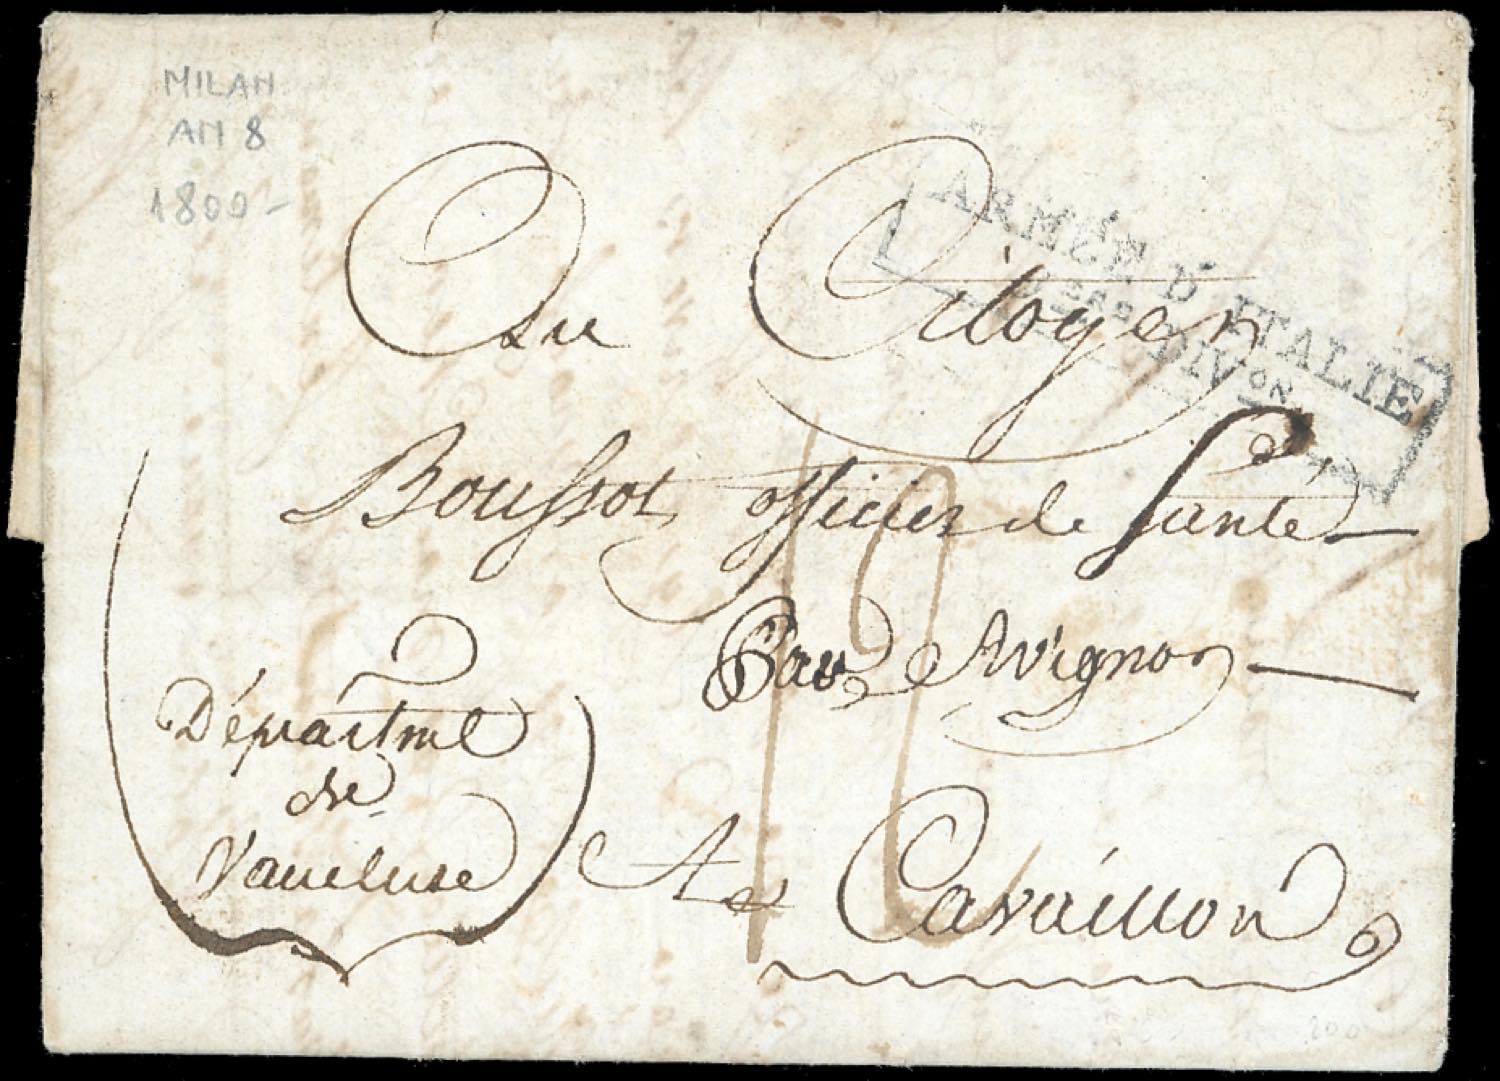 MILAN
AN 8
1800-
Au Citoyen
ARMÉE D'ITALIE
DIV.ON
Boussot officier de Santé
Par Avignon
Départme
de
Vaucluse
A
Cavaillon
200